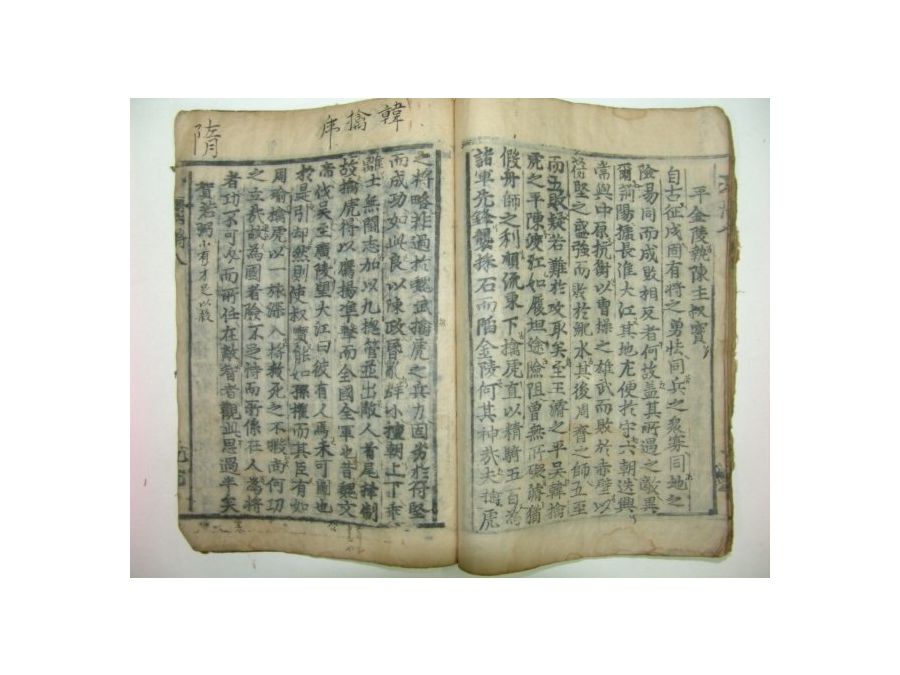 平金陵執陳主叔寶
自古征戍固有將之勇怯同兵之衆寡同地之
險易同而成敗相反者何故盖其所遇之敵異
爾荊陽擅長淮大江其地尤便於守六朝迭興
常與中原抗衡以曹操之雄武而敗於赤壁以
符堅之盛強而敗於淝水其後周齊之師五至
而五敗疑若難於攻取矣至王濬之平吳韓擒
虎之平陳渡江如履坦途險阻曾無所礙濬猶
假舟師之利順流東下擒虎直以精騎五百為
諸軍先鋒襲採石而陷金陵何其神哉夫擒虎
韓擒虎
隋
之將略非過於魏武擒虎之兵力固劣於符堅
而成功如此良以陳政昏亂群小擅朝上下乖
離士無鬪志加以九摠管並出敵人首尾掣制
故擒虎得以鷹揚凖擊而全國全軍也昔魏文
帝伐吳至廣陵望大江曰彼有人焉未可圖也
於是引却然則使叔寶能如孫權而其臣有如
周瑜擒虎以一旅深入將救死之不暇尚何功
之立哉故為國者險不足恃而所係在人為將
者功不可必而所任在敵智者觀此思過半矣
賀若弼小有才足以殺